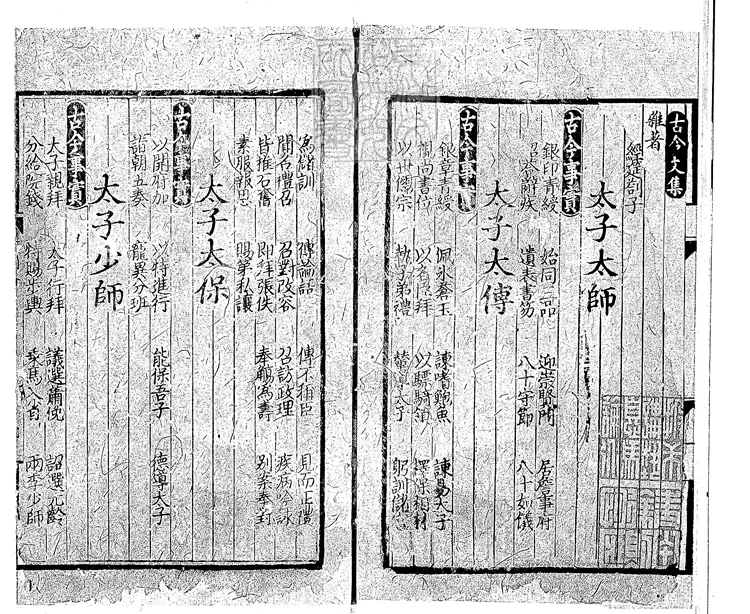 古今文集
雜著
經筵劄子
太子太師
古今事實
銀印青綬 始同三品 迎崇賢門 居詹事府
遺表書笏 八十守節 八十如儀
太子太傅
古今事實
銀章青綬 佩水蒼玉 諫嗜鮑魚 諫易太子
以 拜 以驃騎領 擇保相材
以世儒宗 執子弟禮 輔導太子 躬訓儲
為儲訓 傳論語 傳不稱臣 見而正禮
聞名禮召 召對改容 召訪政理 疾病吟詠
皆推石奮 即拜張佚 奉觴為壽 別奏奉封
素服報恩 賜第私讓
太子太保
古今事實
以開府加 以特進行 能保吾子 德導太子
詣朝五奏 寵異分班
太子少師
古今事實
太子親拜 太子行拜 議選蕭俛 詔選元齡
分給院錢 特賜步輿 乘馬入省 兩李少師